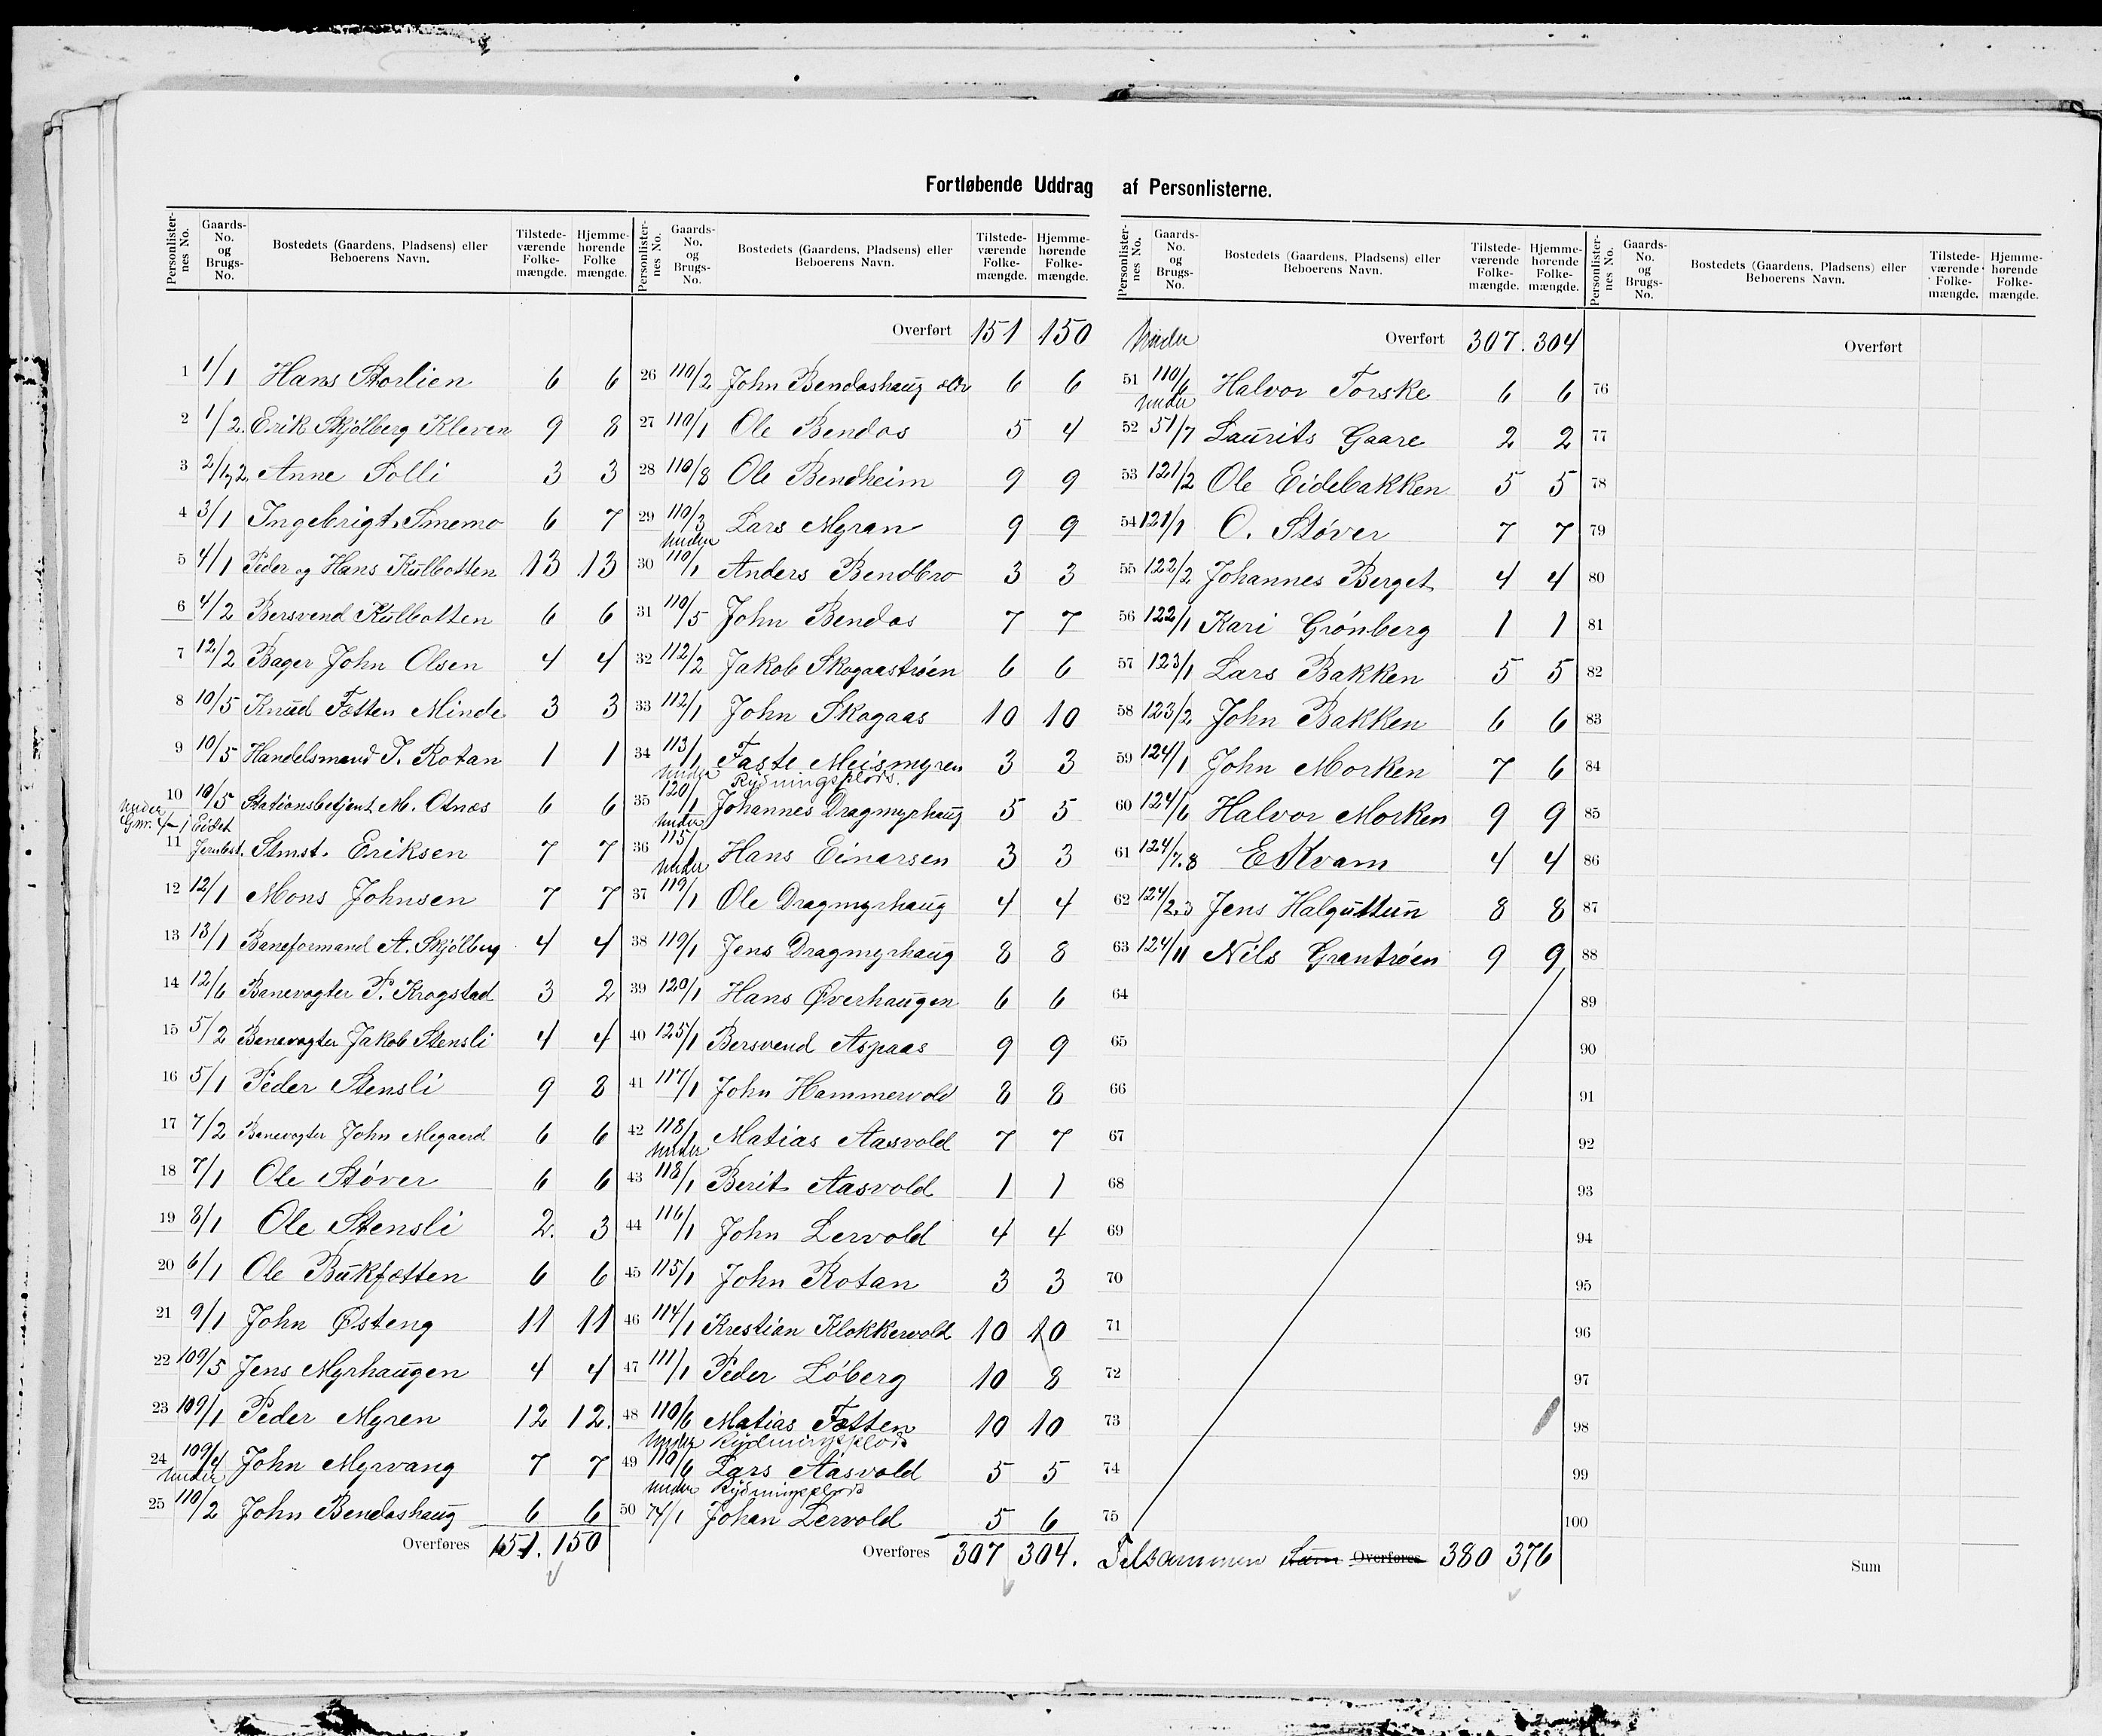 Fortløbende Uddrag af Personlisterne.
Personlisternes No. Gaards-No. og Brugs-No. Bostedets (Gaardens, Pladsens) eller Beboerens Navn. Tilstedeværende Folkemængde. Hjemmehørende Folke mængde.
1 1/1 Hans Storlien 6 6
2 1/2. Erik Skjölberg Kleven 9 8
3 2/1,2. Anne Solli 3 3
4 3/1 Ingebrigt Smemo 6 7
5 4/1 Peder og Hans Kulbotten 13 13
6 4/2 Bersvend Kulbotten 6 6
7 12/2 Bager John Olsen 4 4
8 10/5 Knud Fætten Minde 3 3
9 10/5 Handelsmand J. Rotan 1 1
10 10/5 Stationsbetjent M. Otnæs 6 6
under Gnr. 4/1 Eidet
11 Jernbst. Stmst. Eriksen 7 7
12 12/1 Mons Johnsen 7 7
13 13/1 Baneformand A. Skjölberg 4 4
14 12/6 Banevogter P. Krogstad 3 2
15 5/2 Banevogter Jakob Stensli 4 4
16 5/1 Peder Stensli 9 8
17 7/2 Banevogter John Megaard 6 6
18 7/1 Ole Støver 6 6
19 8/1 Ole Stensli 2. 3
20 6/1 Ole Bukfætten 6 6
21 9/1 John Østeng 11 11
22 109/5 Jens Myrhaugen 4 4
23 109/1 Peder Myren 12 12.
24 109/4 John Myrvang 7 7
under
25 110/2 John Bendoshaug 6 6
Overføres 151. 150
Personlisternes No. Gaards-No. og Brugs-No. Bostedets (Gaardens, Pladsens) eller Beboerens Navn. Tilstedeværende Folkemængde. Hjemmehørende Folkemængde.
Overført 151 150
26 110/2 John Bendoshaug 6 6
27 110/1 Ole Bendos 5 4
28 110/8 Ole Bendheim 9 9
29 110/3 Lars Myran 9 9
under
30 110/1 Anders Bendbro 3 3
31 110/5 John Bendos 7 7
32 112/2 Jakob Skogaastrøen 6 6
33 112/1 John Skogaas 10 10
34 113/1 Faste Meismyren 3 3
under Rydningsplads.
35 120/1 Johannes Dragmyrhaug 5 5
under
36 115/1 Hans Einarsen 3 3
under
37 119/1 Ole Dragmyrhaug 4 4
38 119/1 Jens Dragmyrhaug 8 8
39 120/1 Hans Øverhaugen 6 6
40 125/1 Bersvend Aspaas 9 9
41 117/1 John Hammervold 8 8
42 118/1 Matias Aasvold 7 7
under
43 118/1 Berit Aasvold 1 1
44 116/1 John Lervold 4 4
45 115/1 John Rotan 3 3
46 114/1 Krestian Klokkervold 10 10
47 111/1 Peder Løberg 10 8
48 110/6 Matias Fætten 10 10
under Rydningsplads
49 110/6 Lars Aasvold 5 5
under Rydningsplads
50 74/1 Johan Lervold 5 6
Overføres 307 304.
Personlisternes No. Gaards-No. og Brugs-No. Bostedets (Gaardens, Pladsens) eller Beboerens Navn. Tilstedeværende Folkemængde. Hjemmehørende Folkemængde.
under Overført 307. 304
51 110/6 Halvor Torske 6 6
under
52 51/7 Laurits Gaare 2 2
53 121/2 Ole Eidebakken 5 5
54 121/1 O. Støver 7 7
55 122/2 Johannes Berget 4 4
56 122/1 Kari Grønberg 1 1
57 123/1 Lars Bakken 5 5
58 123/2 John Bakken 6 6
59 124/1 John Morken 7 6
60 124/6 Halvor Morken 9 9
61 124/7.8 E Kvam 4 4
62 124/2,3 Jens Halguttun 8 8
63 124/11 Nils Grantrøen 9 9
64
65
66
67
68
69
70
71
72
73
74
75
Tilsammen Sum Overføres 380 376
Personlisternes No. Gaards-No. og Brugs-No. Bostedets (Gaardens, Pladsens) eller Beboerens Navn. Tilstedeværende Folkemængde. Hjemmehørende Folkemængde.
Overført
76
77
78
79
80
81
82
83
84
85
86
87
88
89
90
91
92
93
94
95
96
97
98
99
100
Sum